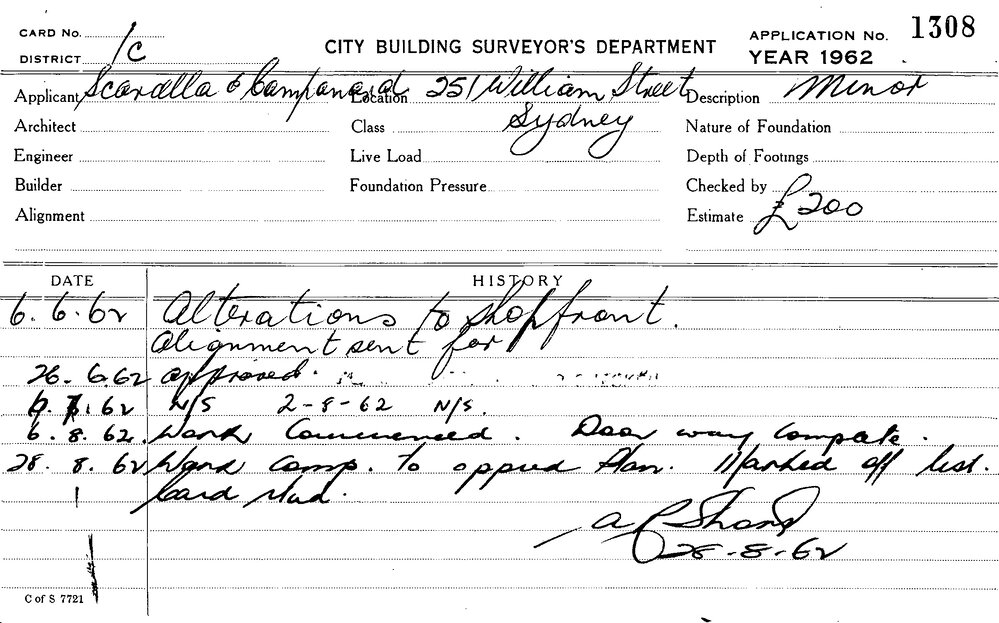 CARD No. 1c
DISTRICT
CITY BUILDING SURVEYOR'S DEPARTMENT
APPLICATION No. 1308
YEAR 1962
Applicant Scarella & Campanard Location 251 William Street Description Minor
Architect Class Sydney Nature of Foundation
Engineer Live Load Depth of Footings
Builder Foundation Pressure Checked by
Alignment Estimate £200
DATE HISTORY
6.6.62 Alterations to shopfront.
Alignment sent for
26.6.62 approved.
62 N/S 2-8-62 N/S.
6.8.62. Work Commenced. Door way Compete.
28.8.62 Work Comp. to Plan. Marked off list.
Card
28-8-62
C of S 7721